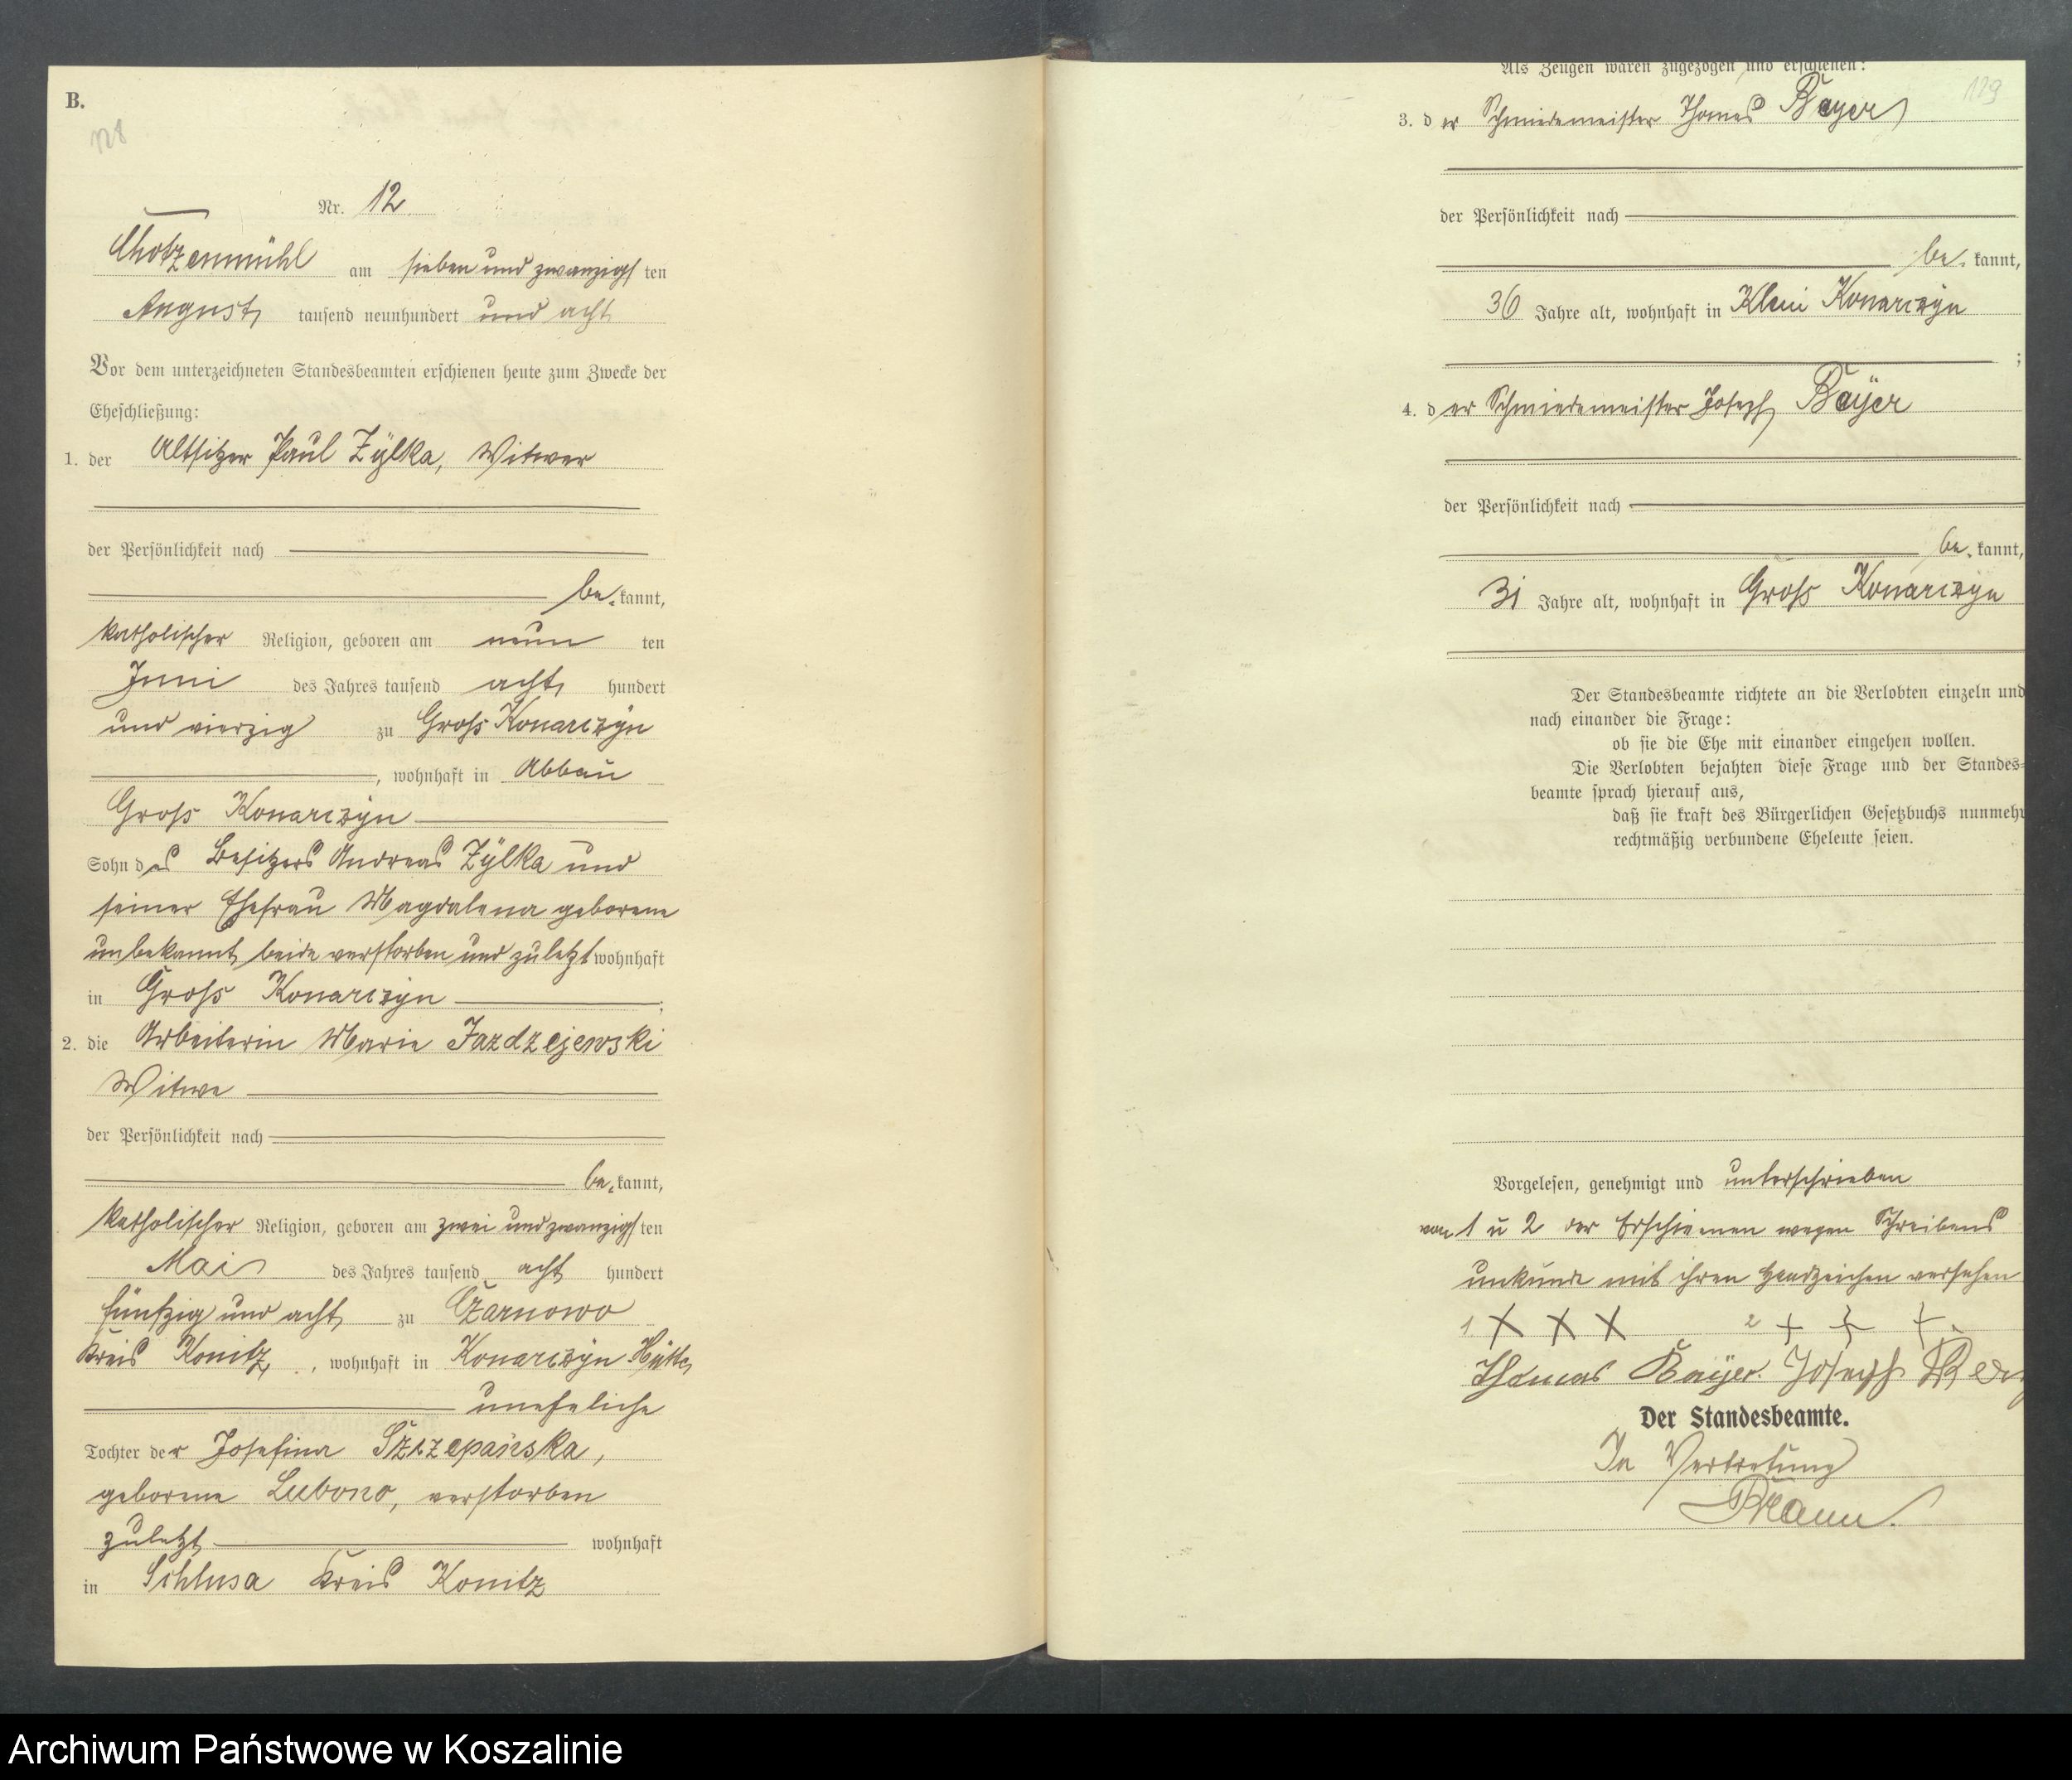 B.
128
Nr. 12
Chotzenmühl am sieben und zwanzigsten
August tausend neunhundert und acht
Vor dem unterzeichneten Standesbeamten erschienen heute zum Zwecke der
Eheschließung:
1. der Altsitzer Paul Zÿlka, Witwer
der Persönlichkeit nach
be kannt,
katholischer Religion, geboren am neun ten
Juni des Jahres tausend acht hundert
und vierzig zu Gross Konarczyn
, wohnhaft in Abbau
Gross Konarczyn
Sohn des Besitzers Andreas Zÿlka und
seiner Ehefrau Magdalena geborene
unbekannt, beide verstorben und zuletzt wohnhaft
in Gross Konarczyn ;
2. die Arbeiterin Marie Jazdzejewski
Witwe
der Persönlichkeit nach
be kannt,
katholischer Religion, geboren am zwei und zwanzigsten
Mai des Jahres tausend acht hundert
fünfzig und acht zu Czarnowo
Kreis Konitz, wohnhaft in Konarczyn Hütte
uneheliche
Tochter der Josefina Szczepańska,
geborene verstorben
zuletzt wohnhaft
in Schlusa Kreis Konitz
Als Zeugen waren zugezogen und erschienen:
129
3. der Schmiedemeister Thomas Bayer
der Persönlichkeit nach
be kannt,
36 Jahre alt, wohnhaft in Klein Konarczyn
;
4. der Schmiedemeister Joseph Baÿer
der Persönlichkeit nach
be kannt,
31 Jahre alt, wohnhaft in Gross Konarczyn
Der Standesbeamte richtete an die Verlobten einzeln und
nach einander die Frage:
ob sie die Ehe mit einander eingehen wollen.
Die Verlobten bejahten diese Frage und der Standes=
beamte sprach hierauf aus,
daß sie kraft des Bürgerlichen Gesetzbuchs nunmehr
rechtmäßig verbundene Eheleute seien.
Vorgelesen, genehmigt und unterschrieben
von 1 u 2 der Erschienenen wegen Schreibens
unkunde mit ihren Handzeichen versehen
1 X X X 2 + + +
Thomas Baÿer. Joseph
Der Standesbeamte.
In Vertretung
Archiwum Państwowe w Koszalinie